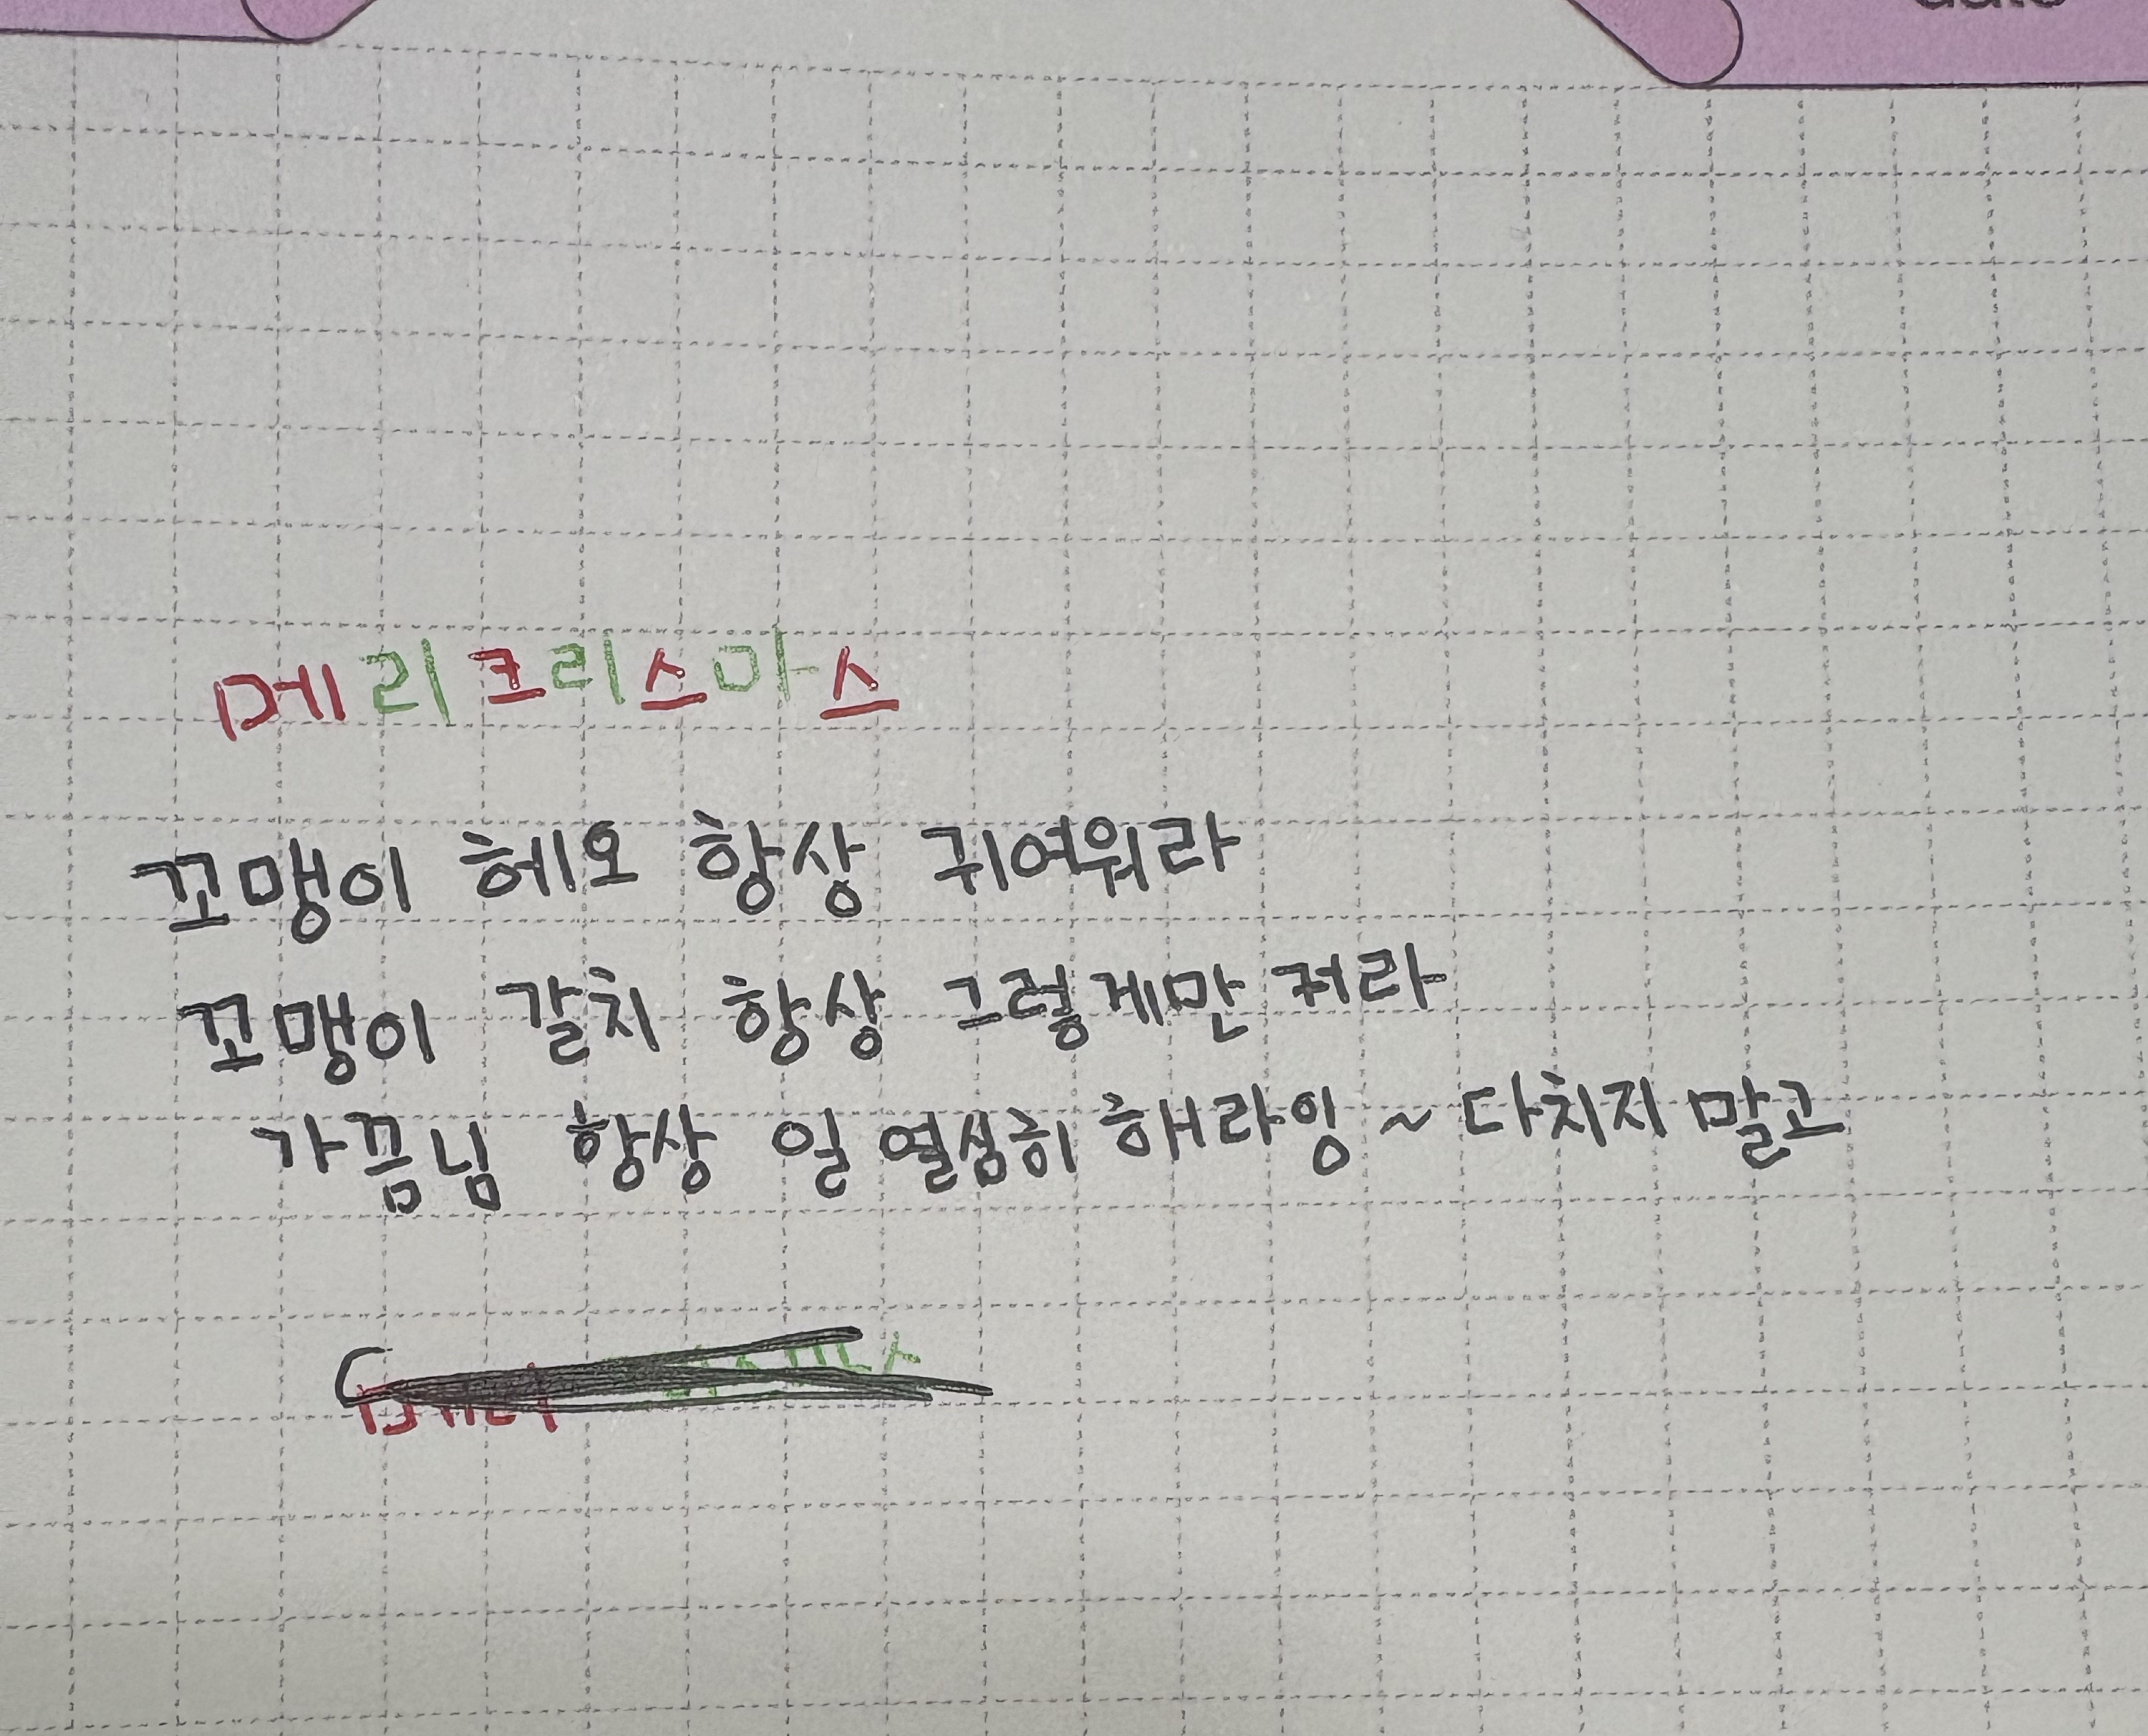 메리크리스마스
꼬맹이 헤오 항상 귀여워라
꼬맹이 갈치 항상 그렇게만 커라
가끔님 항상 일 열심히 해라잉~ 다치지 말고